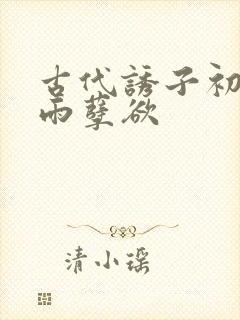 古代誘子初
雨孽欲
清小瑶